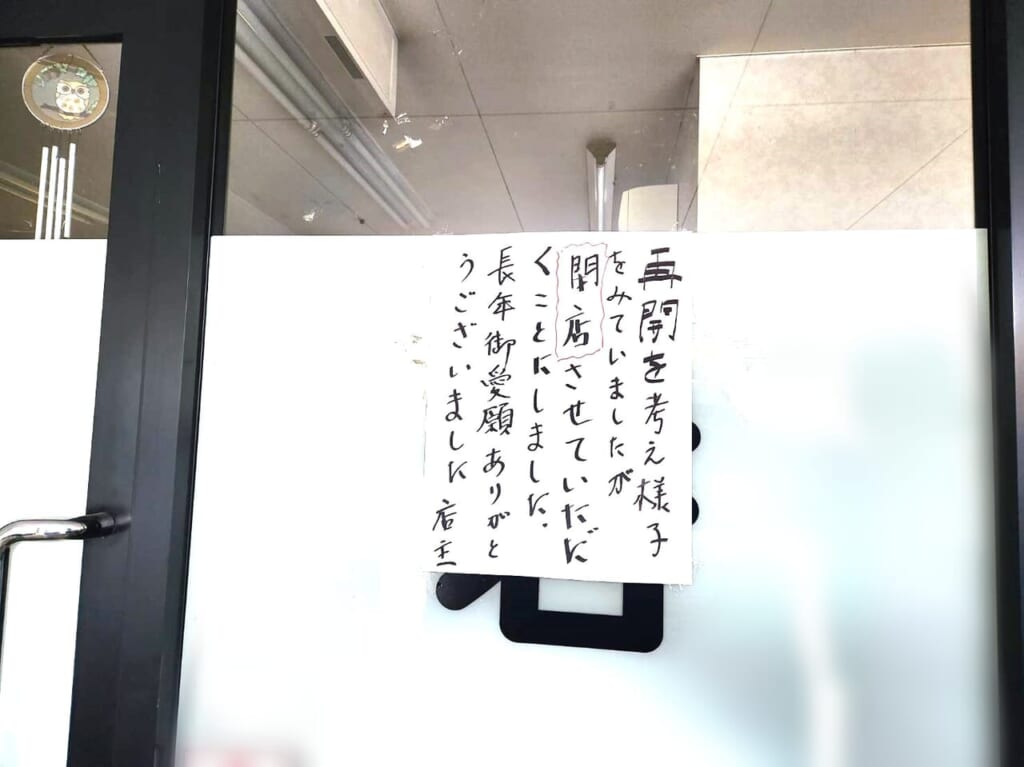 再開を考え様子
をみていましたが
閉店させていただ
くことにしました.
長年御愛願ありがと
うございました 店主